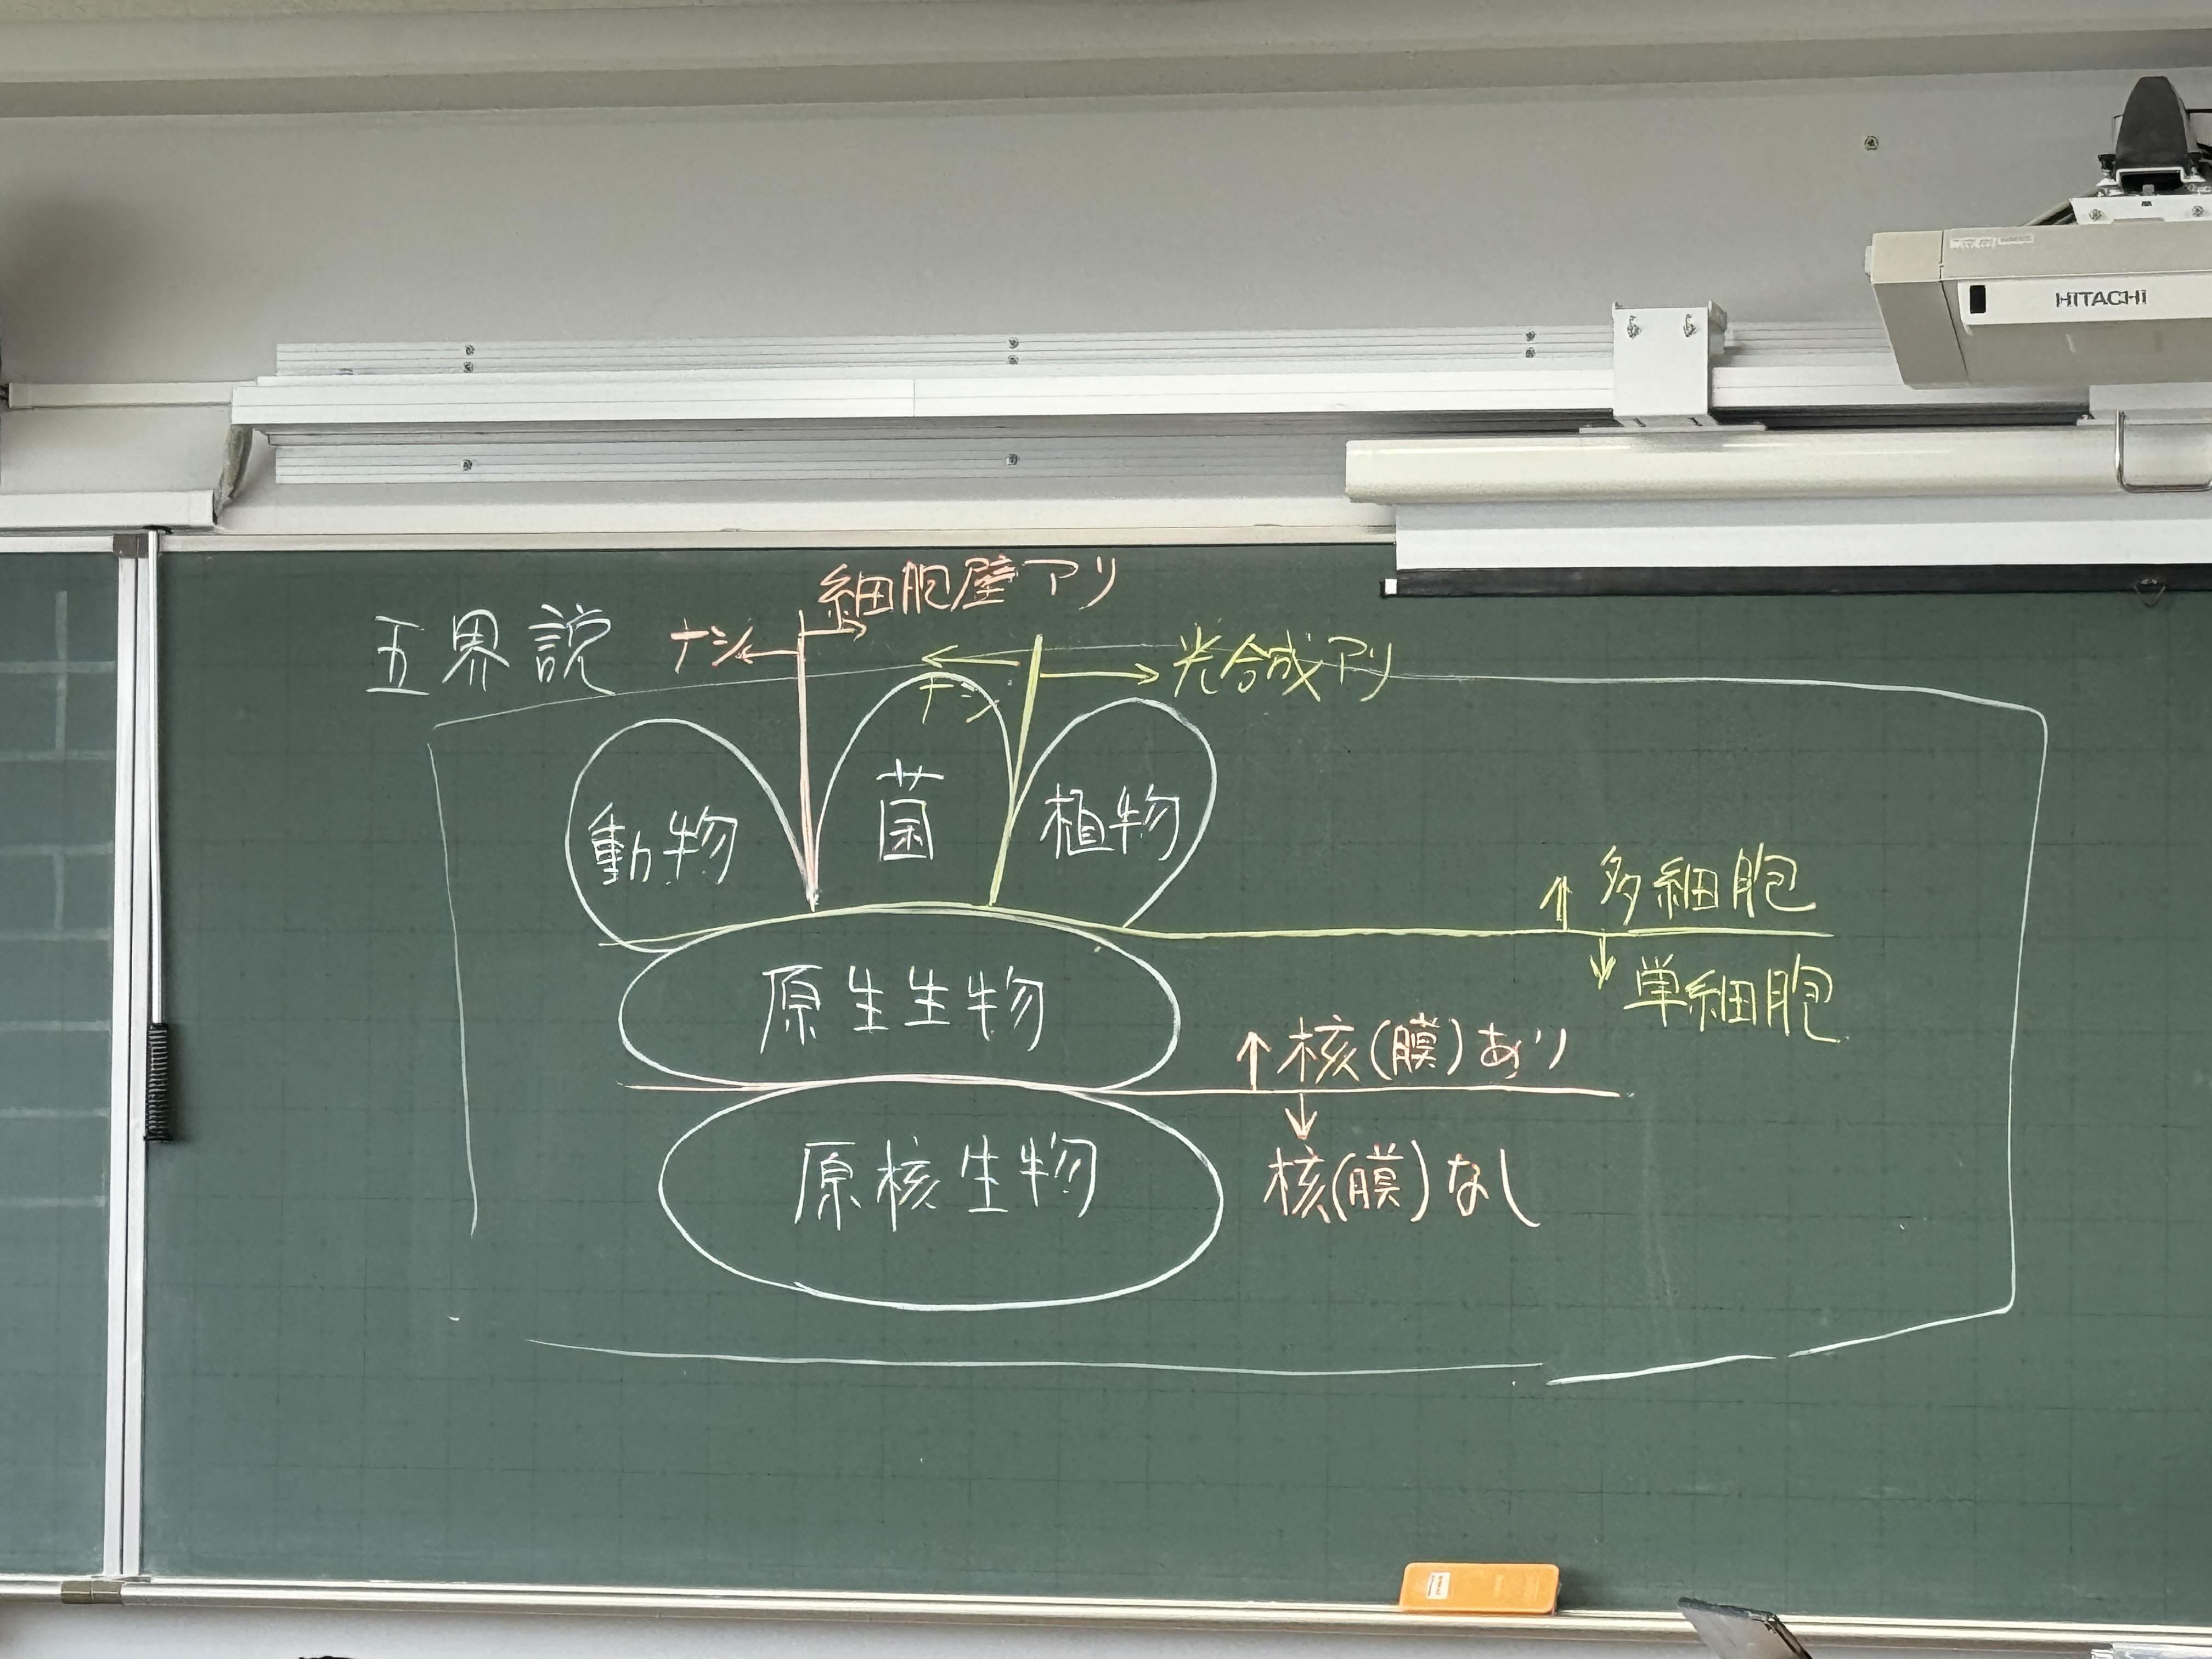 HITACHI
五界説
細胞壁アリ
ナシ
光合成アリ
ナシ
動物
菌
植物
多細胞
単細胞
原生生物
核(膜)あり
原核生物
核(膜)なし